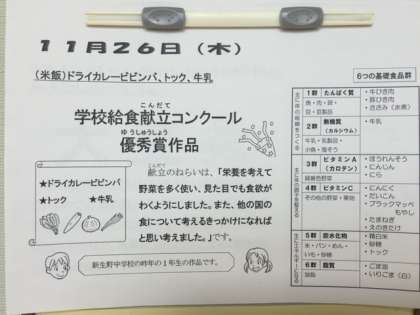 11月26日（木）
（米飯）ドライカレービビンバ、トック、牛乳
こんだて
学校給食献立コンクール
ゆうしゅうしょう
優秀賞作品
★ドライカレービビンバ
★トック　★牛乳
こんだて
献立のねらいは、「栄養を考えて
野菜を多く使い、見た目でも食欲が
わくようにしました。また、他の国の
食について考えるきっかけになれば
と思い考えました。」です。
新生野中学校の昨年の１年生の作品です。
6つの基礎食品群
1群　たんぱく質
魚・肉・卵・
豆・豆製品
・牛ひき肉
・豚ひき肉
・ささみ（水煮）
2群　無機質
（カルシウム）
牛乳・乳製品
小魚・海そう
・牛乳
3群　ビタミンA
（カロテン）
緑黄色野菜
・ほうれんそう
・にんじん
・にら
4群　ビタミンC
その他の野菜・果物
・にんにく
・だいこん
・ブラックマッペ
もやし
・たまねぎ
・えのきたけ
5群　炭水化物
米・パン・めん・
いも・砂糖
・精白米
・砂糖
・トック
6群　脂質
油脂
・ごま油
・いりごま（白）